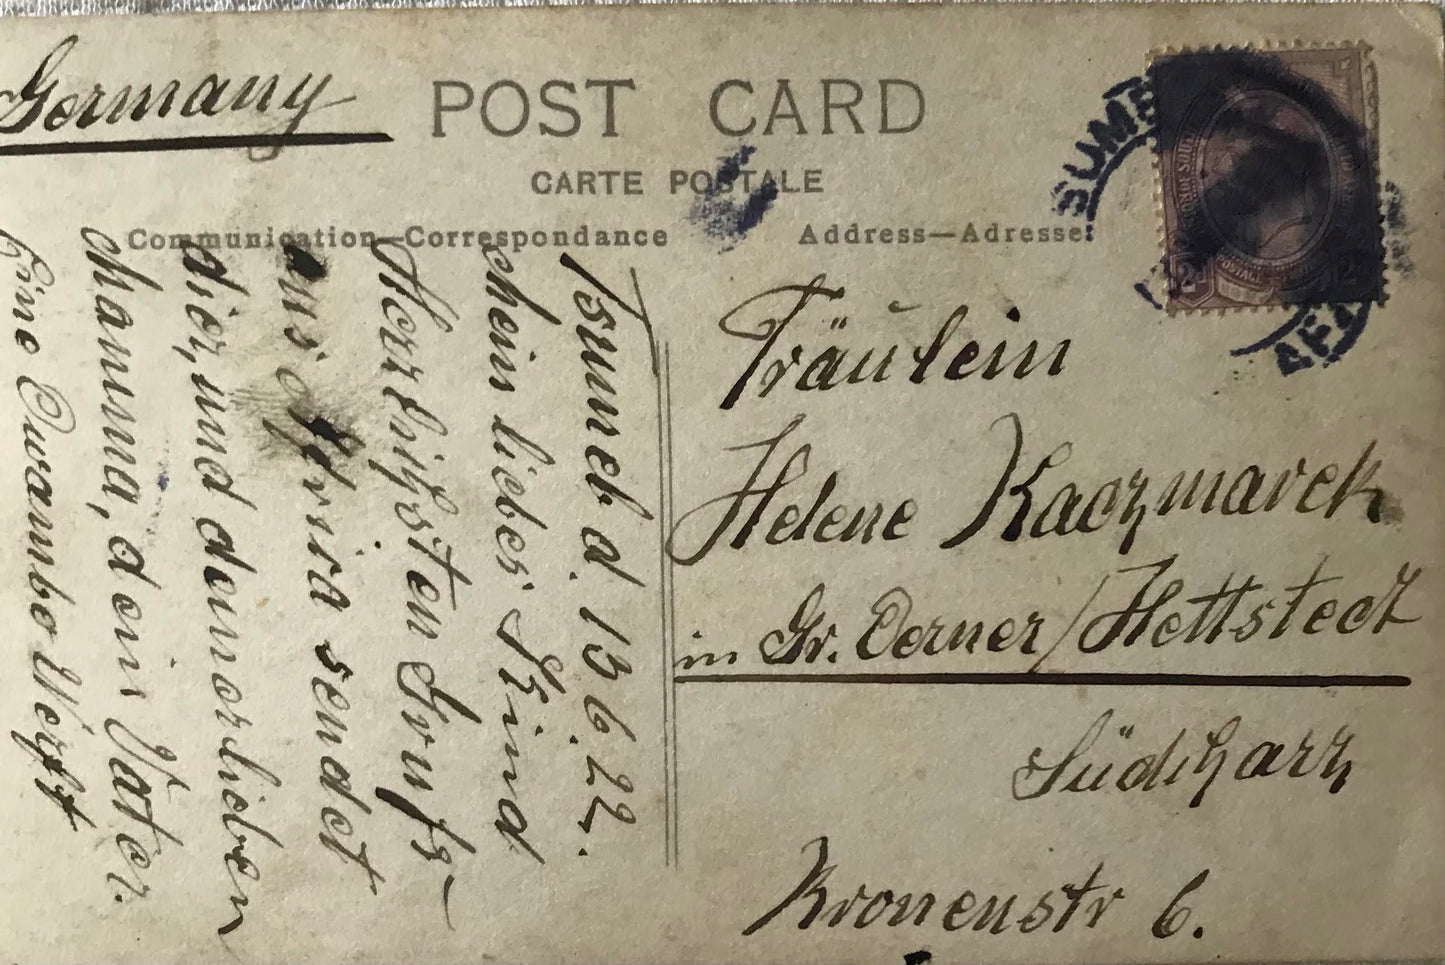 Germany
POST CARD
CARTE POSTALE
Communication—Correspondance
Address—Adresse:
SUMEB
AFR
POSTAGE
2 2
Tsumeb d. 15.6.22.
Mein liebes Kind
Herzlichsten Gruß
aus Afrika sendet
dir, und der
Mamma, dein Vater.
Eine Owambo Werft
Fräulein
Helene Kaczmarek
in Gr. Oerner/Hettstedt
Südharz
Kronenstr 6.